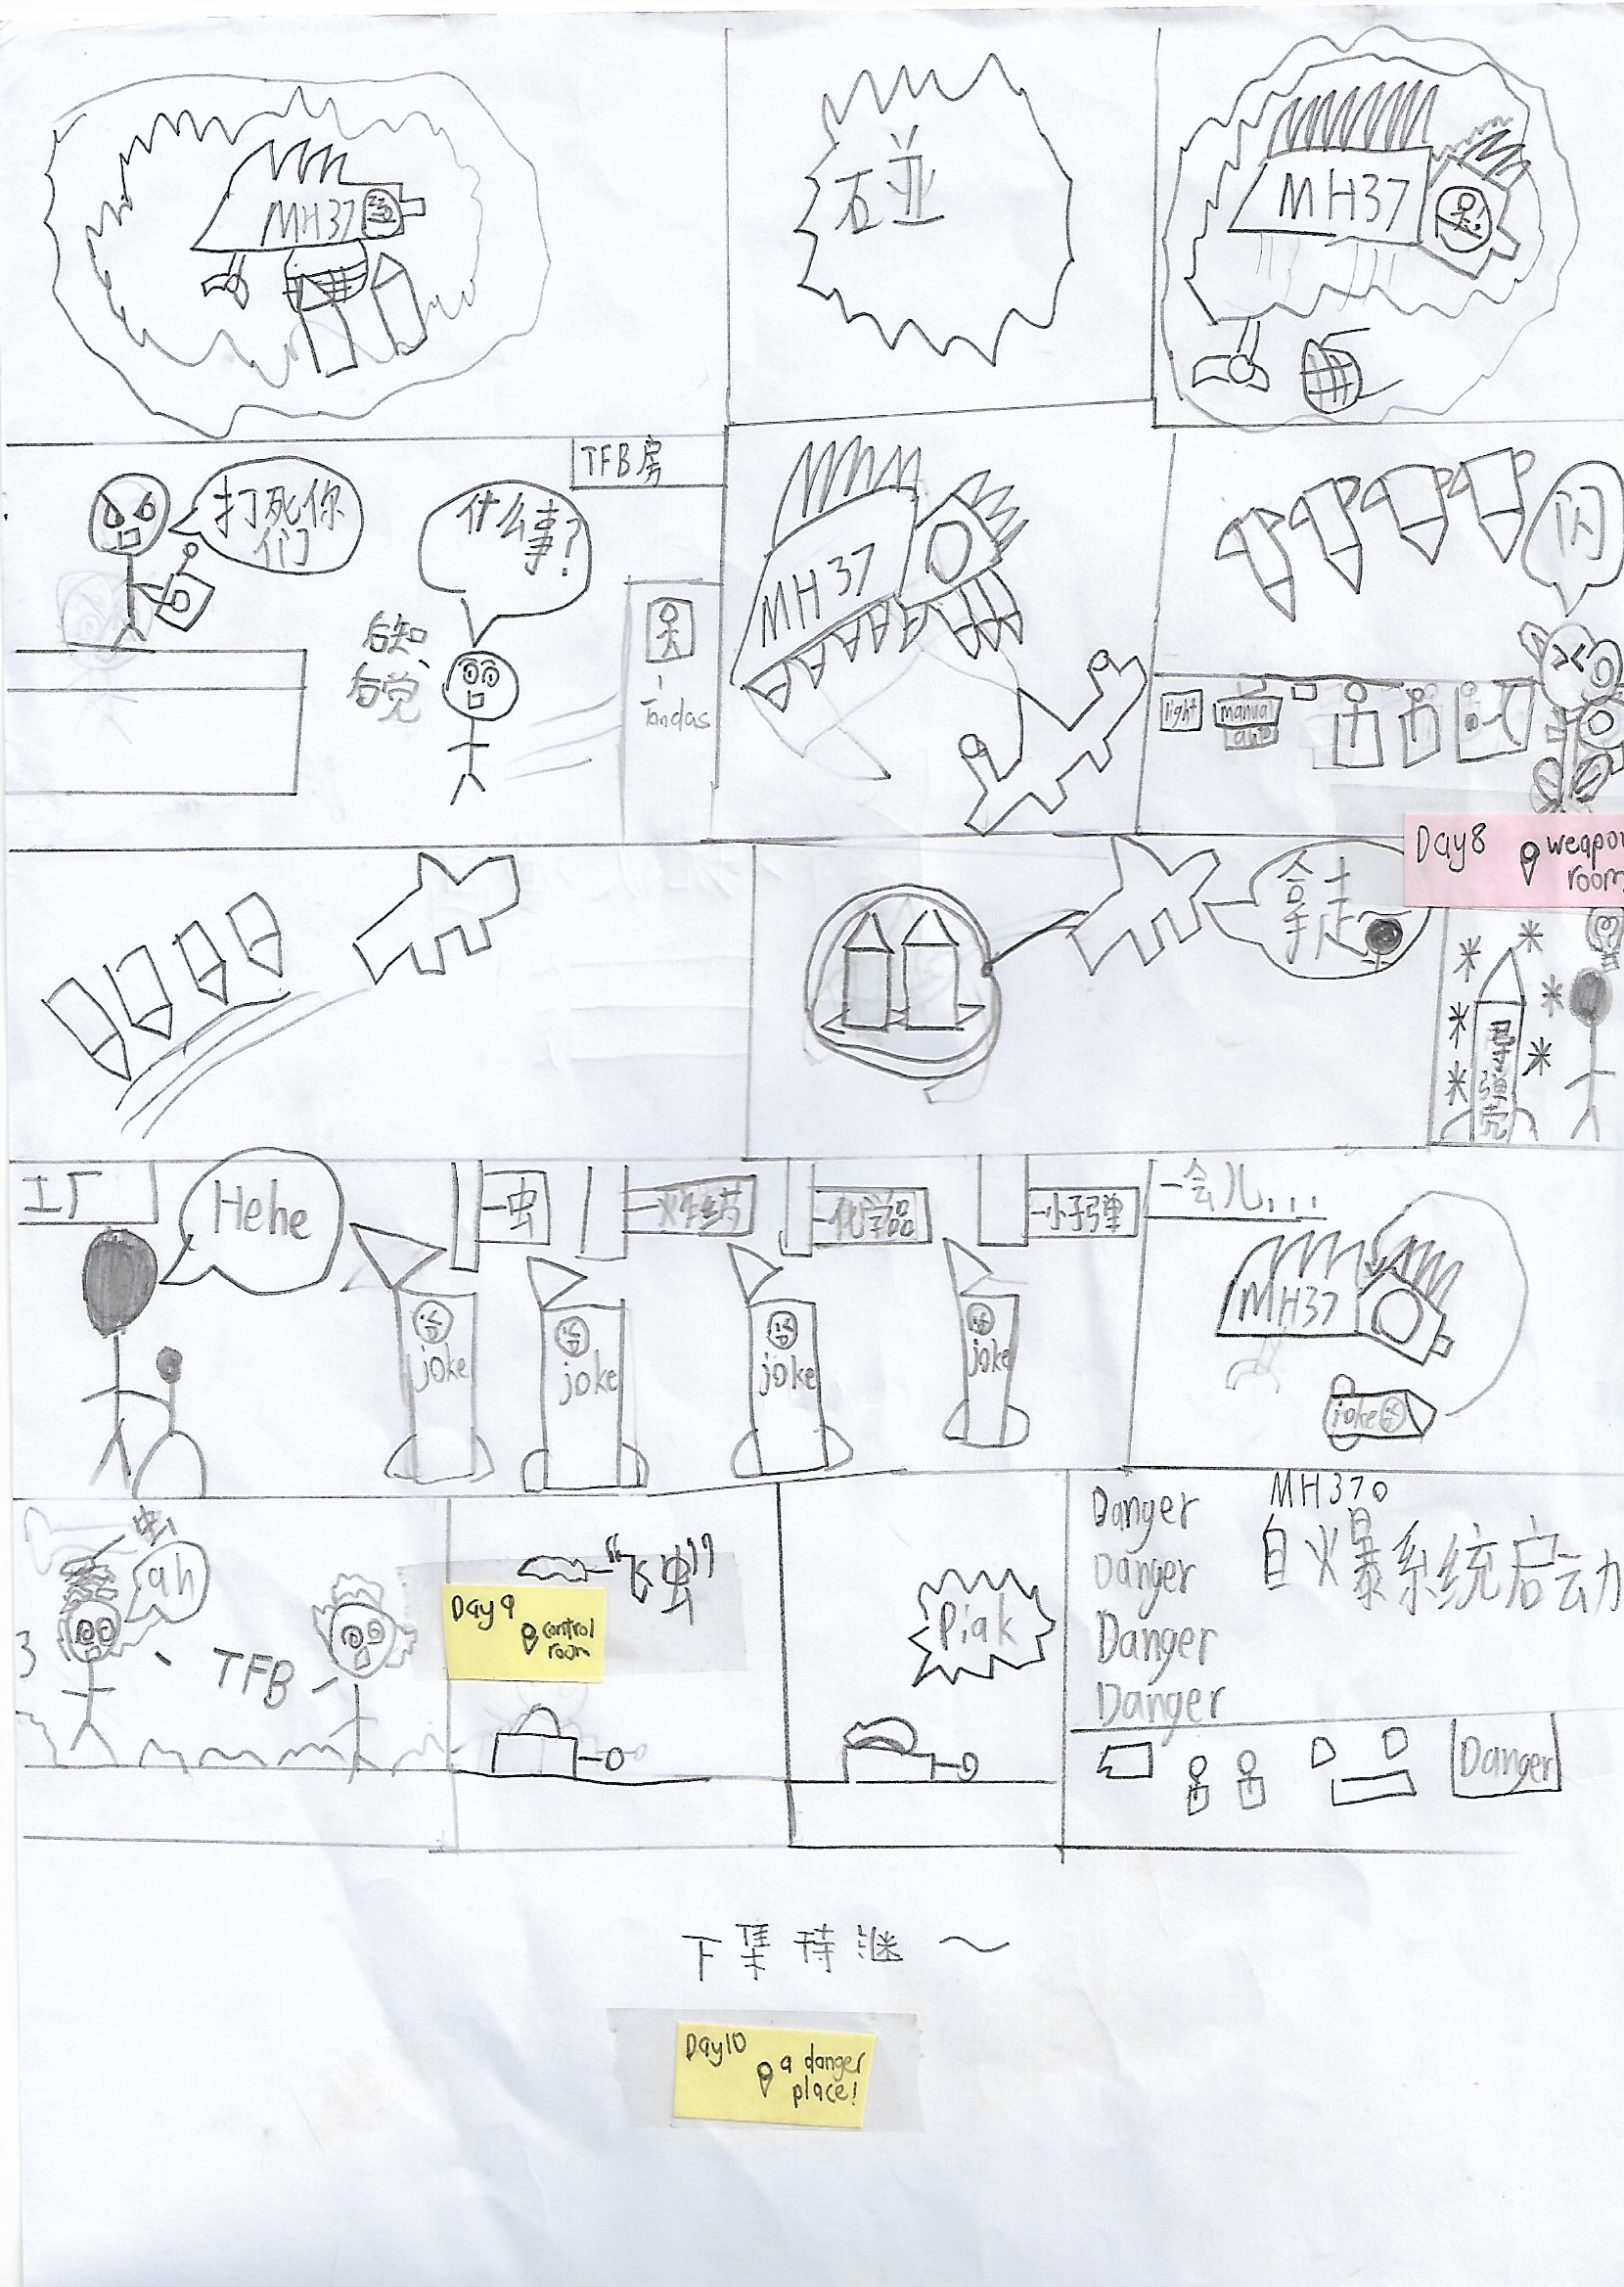 MH37
碰
MH37
打死你
们
什么事?
TFB房
后知
后觉
Tandas
MH37
闪
light
manual
auto
拿走
Day8
weapon
room
工厂
Hehe
一虫
一火炸药
一化学品
一小子弹
joke
joke
joke
joke
一会儿...
MH37
joke
虫
ah
3
TFB
"飞虫"
Day9
control
room
Piak
Danger
Danger
Danger
Danger
MH370
自火暴系统启动
Danger
下集待继～
Day10
a danger
place!